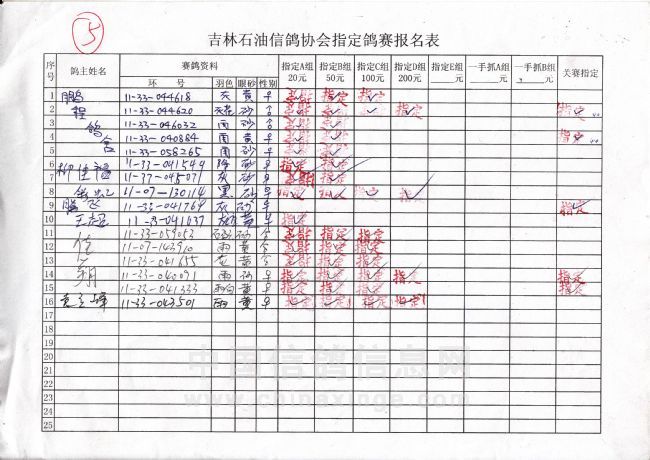 5
吉林石油信鸽协会指定鸽赛报名表
序号 鸽主姓名 赛鸽资料 指定A组 20元 指定B组 50元 指定C组 100元 指定D组 200元 指定E组 元 一手抓A组 元 一手抓B组 元 关赛指定
环 号 羽色 眼砂 性别
1 鹏 11-33-044618 灰 黄 指定 指定
2 程 11-33-044620 砂 指定 指定 指定 指定 指定
3 鸽 11-33-046032 雨 砂 指定 指定
4 舍 11-33-040884 雨 黄 指定 指定 指定
5 11-33-058265 雨 砂 指定 指定
6 柳佳福 11-33-041549 砂 指定 指定
7 11-37-045071 灰 砂 指定 指定
8 11-07-130114 黑 砂 指定 指定 指定 指定
9 腾飞 11-33-041769 灰 砂 指定
10 王超 黄 指定
11 11-33-059053 砂 指定 指定 指定
12 信 11-07-143910 雨 黄 指定 指定 指定
13 11-33-041655 灰 黄 指定 指定 指定
14 翔 11-33-040091 雨 指定 指定 指定 指定 指定
15 11-33-041333 黄 指定 指定 指定 指定
16 11-33-043501 雨 黄 指定 指定 指定 指定
17
18
19
20
21
22
23
24
25
中国信鸽信息网
www.chinaxinge.com